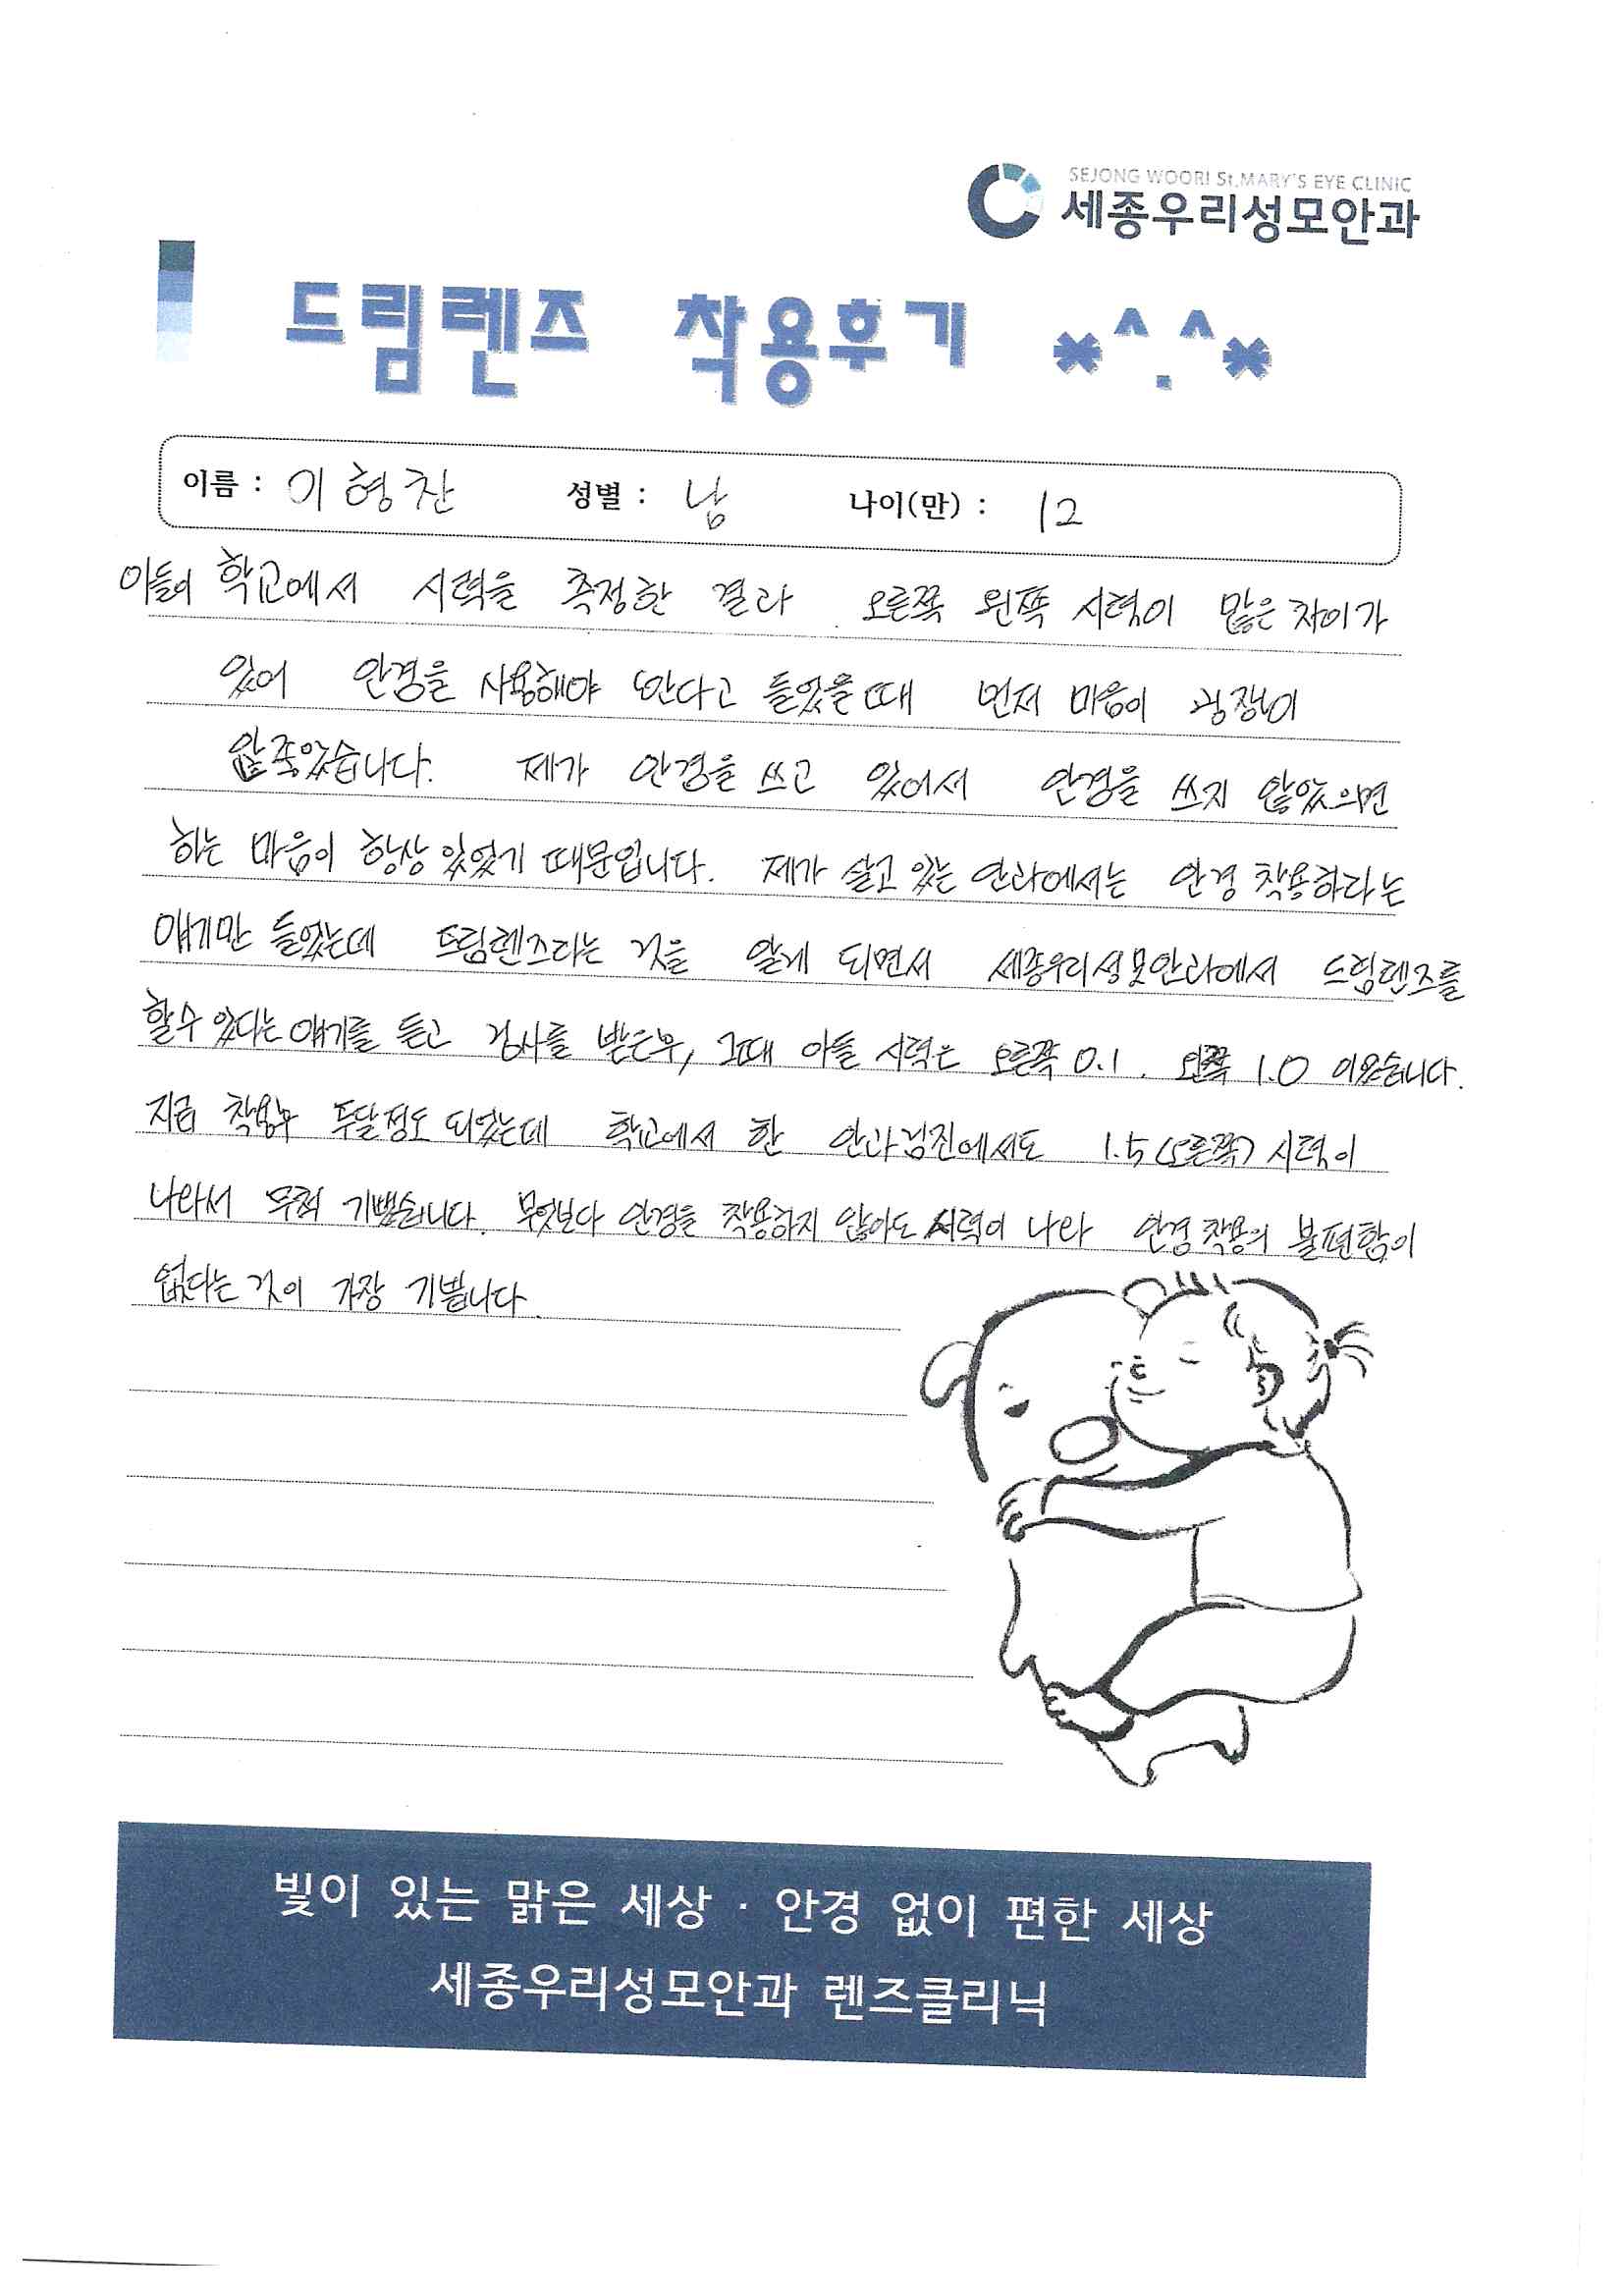 SEJONG WOORI St.MARY'S EYE CLINIC
세종우리성모안과
드림렌즈 착용후기 *^.^*
이름 : 이형찬 성별 : 남 나이(만) : 12
아들이 학교에서 시력을 측정한 결과 오른쪽 왼쪽 시력이 많은 차이가
있어 안경을 사용해야 한다고 들었을때 먼저 마음이 굉장히
안좋았습니다. 제가 안경을 쓰고 있어서 안경을 쓰지 않았으면
하는 마음이 항상 있었기 때문입니다. 제가 살고 있는 안과에서는 안경 착용하라는
얘기만 들었는데 드림렌즈라는 것을 알게 되면서 세종우리성모안과에서 드림렌즈를
할수 있다는 얘기를 듣고 검사를 받은후, 그때 아들 시력은 오른쪽 0.1. 왼쪽 1.0 이었습니다.
지금 착용후 두달정도 되었는데 학교에서 한 안과검진에서도 1.5(오른쪽) 시력이
나와서 무척 기뻤습니다. 무엇보다 안경을 착용하지 않아도 시력이 나와 안경착용의 불편함이
없다는 것이 가장 기쁩니다.
빛이 있는 맑은 세상 · 안경 없이 편한 세상
세종우리성모안과 렌즈클리닉